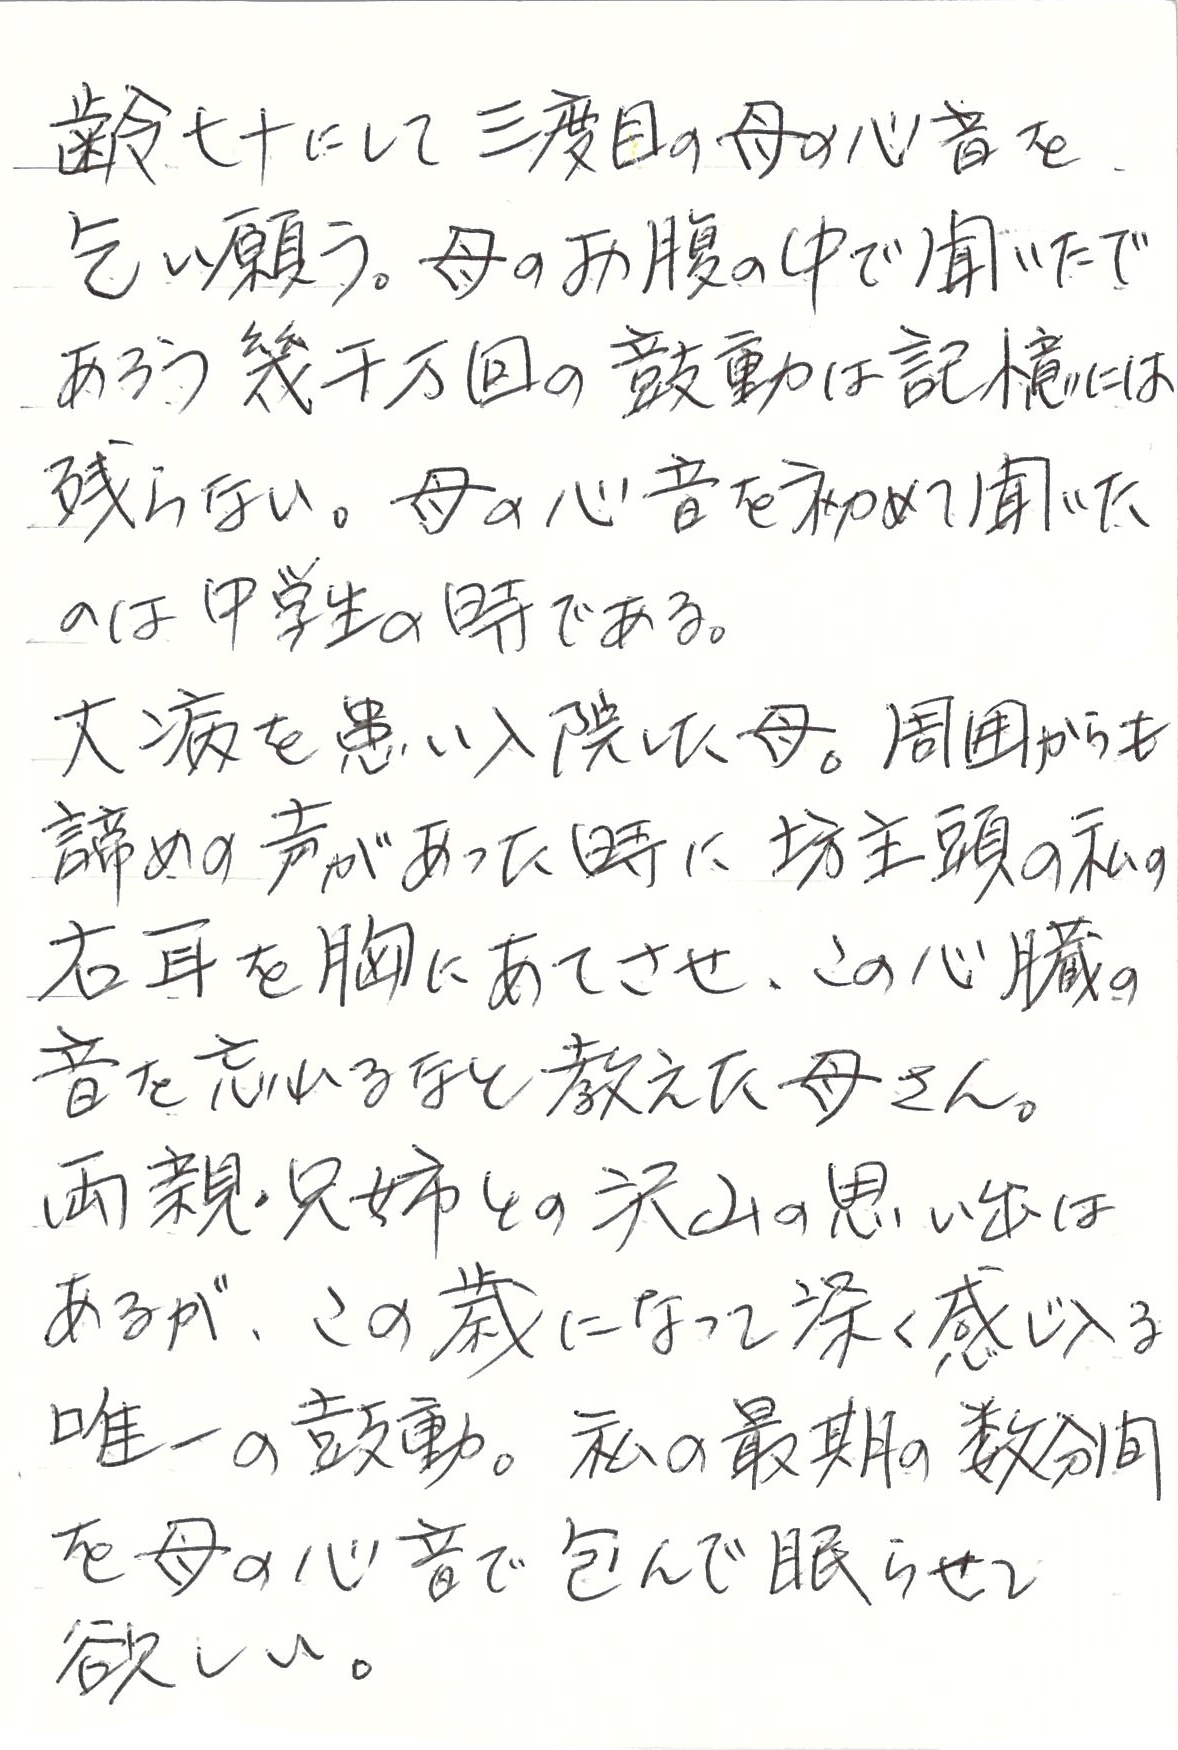 齢七十にして三度目の母の心音を
乞い願う。母のお腹の中で聞いたで
あろう幾千万回の鼓動は記憶には
残らない。母の心音を初めて聞いた
のは中学生の時である。
大病を患い入院した母。周囲からも
諦めの声があった時に坊主頭の私の
右耳を胸にあてさせ、この心臓の
音を忘れるなと教えた母さん。
両親・兄姉との沢山の思い出は
あるが、この歳になって深く感じ入る
唯一の鼓動。私の最期の数分間
を母の心音で包んで眠らせて
欲しい。